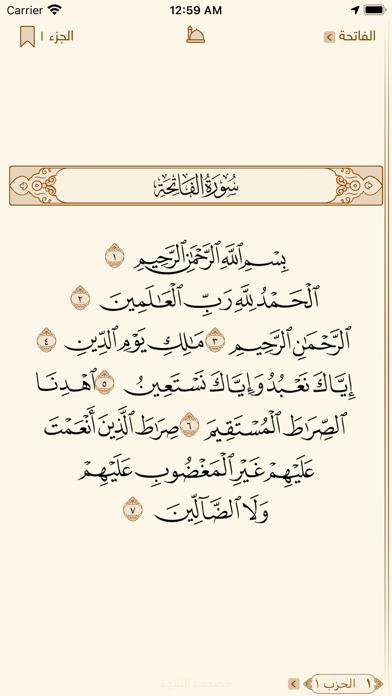 Carrier 12:59 AM
الفاتحة الجزء ١
سُورَةُ الفَاتِحَةِ
بِسْمِ ٱللَّهِ ٱلرَّحْمَٰنِ ٱلرَّحِيمِ ١
ٱلْحَمْدُ لِلَّهِ رَبِّ ٱلْعَٰلَمِينَ ٢
ٱلرَّحْمَٰنِ ٱلرَّحِيمِ ٣ مَٰلِكِ يَوْمِ ٱلدِّينِ ٤
إِيَّاكَ نَعْبُدُ وَإِيَّاكَ نَسْتَعِينُ ٥ ٱهْدِنَا
ٱلصِّرَٰطَ ٱلْمُسْتَقِيمَ ٦ صِرَٰطَ ٱلَّذِينَ أَنْعَمْتَ
عَلَيْهِمْ غَيْرِ ٱلْمَغْضُوبِ عَلَيْهِمْ
وَلَا ٱلضَّآلِّينَ ٧
مصحف التلاوة
١ الحزب ١